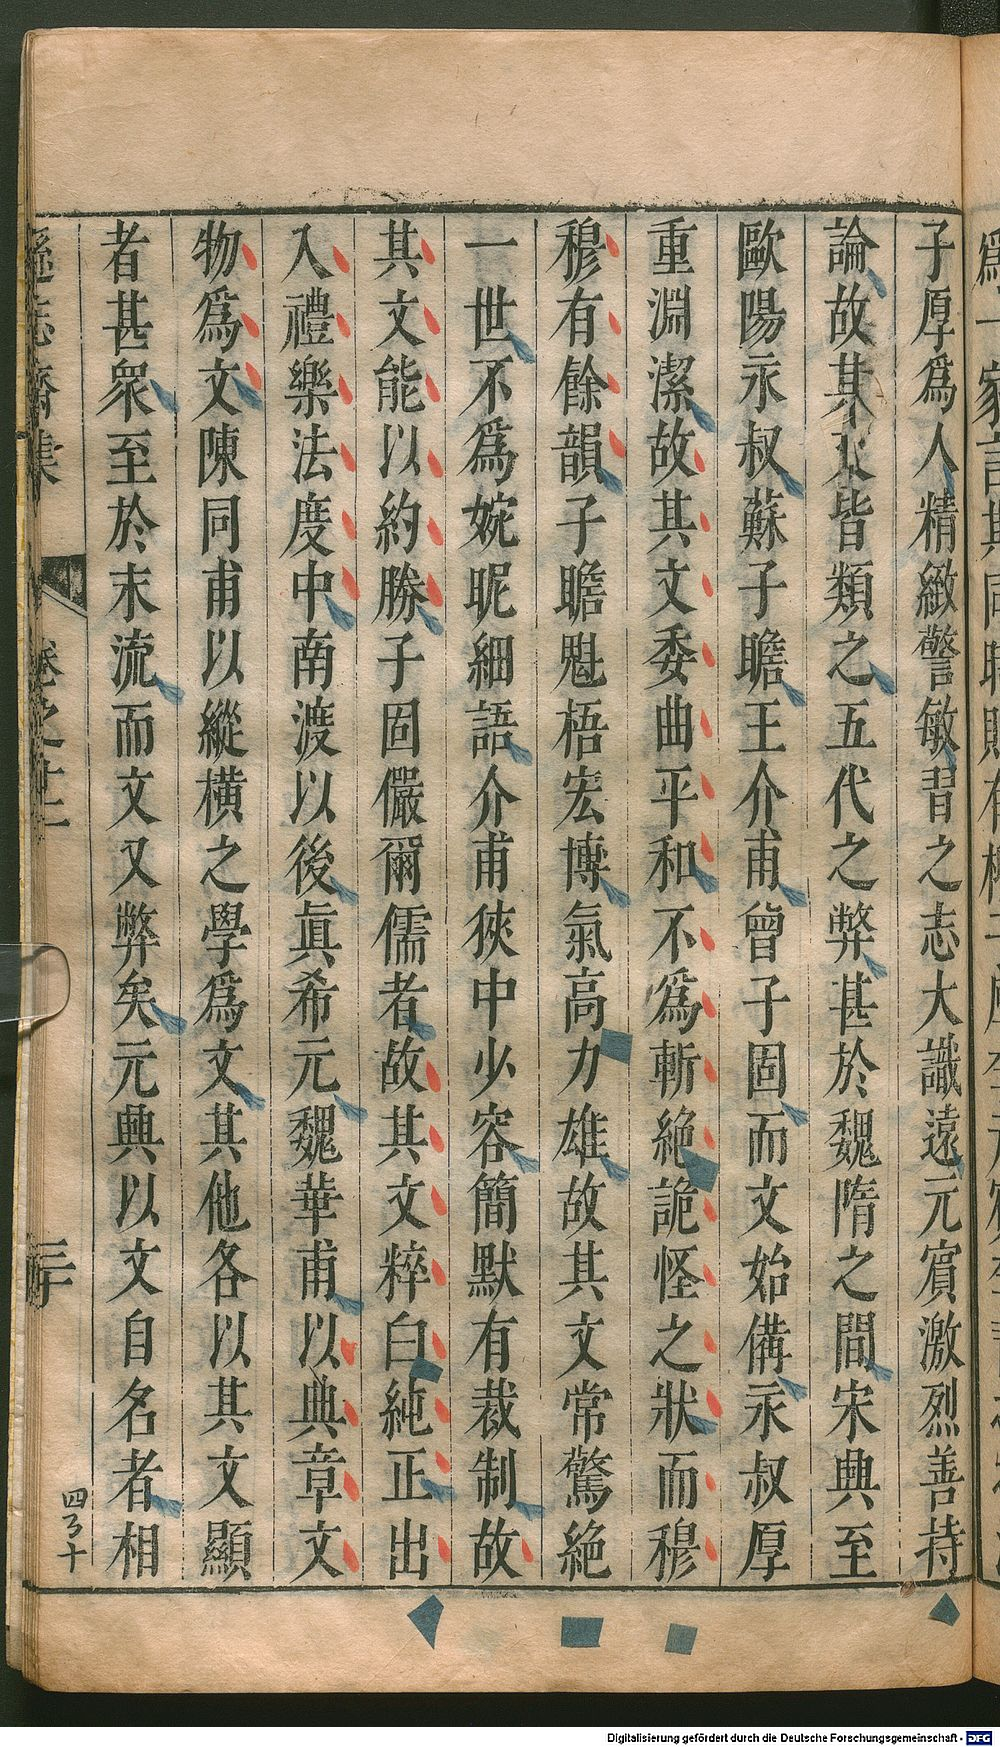 子厚爲人精緻警敏習之志大識遠元賓激烈善持
論故其文皆類之五代之弊甚於魏隋之間宋興至
歐陽永叔蘇子瞻王介甫曾子固而文始備永叔厚
重淵潔故其文委曲平和不爲斬絶詭怪之狀而穆
穆有餘韻子瞻魁梧宏博氣高力雄故其文常驚絶
一世不爲婉昵細語介甫狹中少容簡默有裁制故
其文能以約勝子固儼爾儒者故其文粹白純正出
入禮樂法度中南渡以後眞希元魏華甫以典章文
物爲文陳同甫以縱橫之學爲文其他各以其文顯
者甚衆至於末流而文又弊矣元興以文自名者相
遜志齋集 卷之十二
四百十
Digitalisierung gefördert durch die Deutsche Forschungsgemeinschaft - DFG